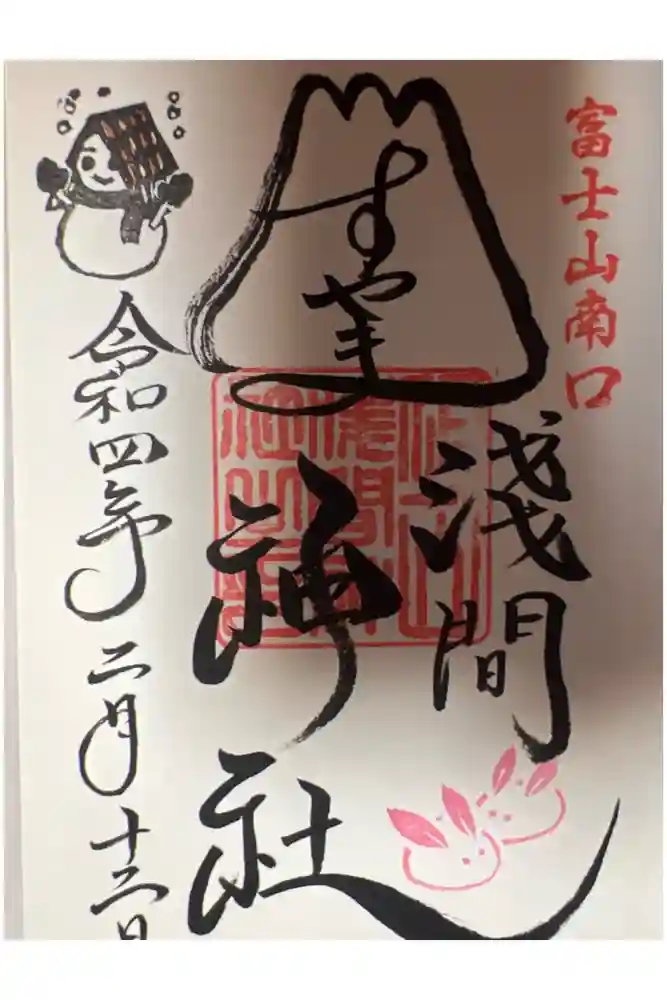 富士山南口
すやま
淺間
神社
令和四年二月十三日